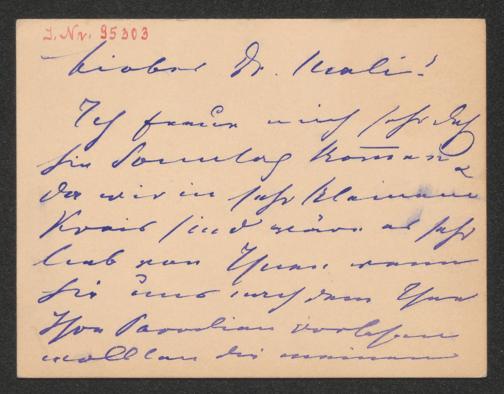 J. Nr. 95303
Lieber Dr. Mali!
Ich freue mich sehr daß
Sie Sonntag kom̄en &
da wir in sehr kleinem
Kreis sind wäre es sehr
lieb von Ihnen wenn
Sie uns nach dem Thee
Ihre Parodien vorlesen
wollten die meinen